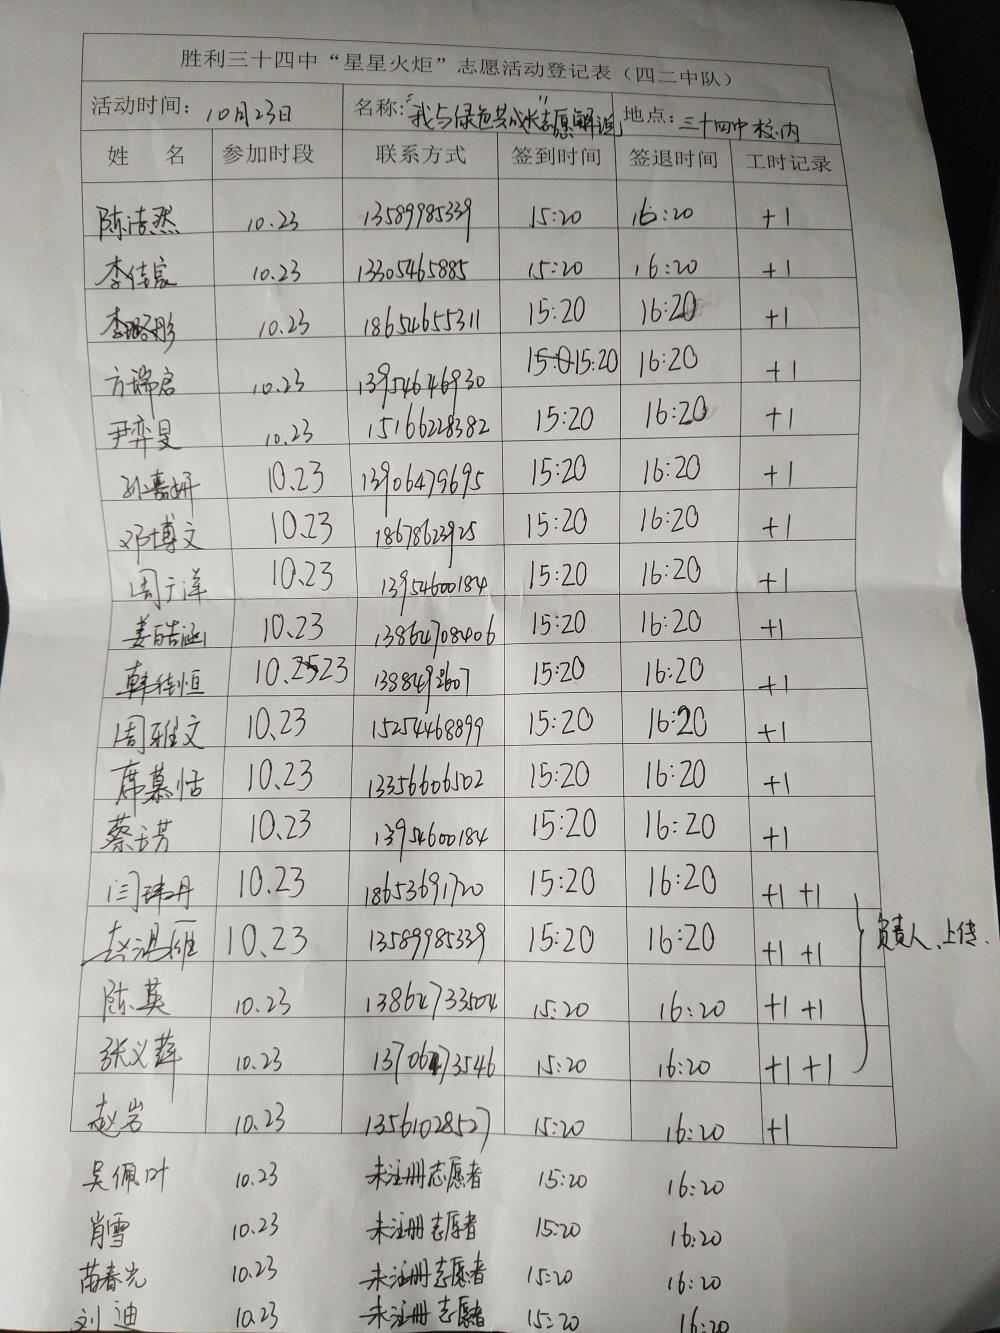 胜利三十四中“星星火炬”志愿活动登记表（四二中队）
活动时间：10月23日 名称：“我与绿色共成长”志愿解说 地点：三十四中校内
姓 名 参加时段 联系方式 签到时间 签退时间 工时记录
陈浩然 10.23 13589985339 15:20 16:20 +1
李佳宸 10.23 13305465885 15:20 16:20 +1
李璐彤 10.23 18654655311 15:20 16:20 +1
方瑞启 10.23 13954646930 15:20 16:20 +1
尹弈旻 10.23 15166228382 15:20 16:20 +1
孙嘉妍 10.23 13906479695 15:20 16:20 +1
邓博文 10.23 18678623925 15:20 16:20 +1
周于洋 10.23 13954600184 15:20 16:20 +1
姜皓涵 10.23 13864708406 15:20 16:20 +1
韩佳恒 10.23 15:20 16:20 +1
周雅文 10.23 15254468899 15:20 16:20 +1
席慕恬 10.23 13356606502 15:20 16:20 +1
蔡云芳 10.23 13954600184 15:20 16:20 +1
闫玮丹 10.23 18653691720 15:20 16:20 +1 +1
赵鸿雁 10.23 13589985339 15:20 16:20 +1 +1 负责人、上传.
陈英 10.23 13864733504 15:20 16:20 +1 +1
张义萍 10.23 13706473546 15:20 16:20 +1 +1
赵岩 10.23 13561028527 15:20 16:20 +1
吴佩叶 10.23 未注册志愿者 15:20 16:20
肖雪 10.23 未注册志愿者 15:20 16:20
苗春光 10.23 未注册志愿者 15:20 16:20
刘迪 10.23 未注册志愿者 15:20 16:20